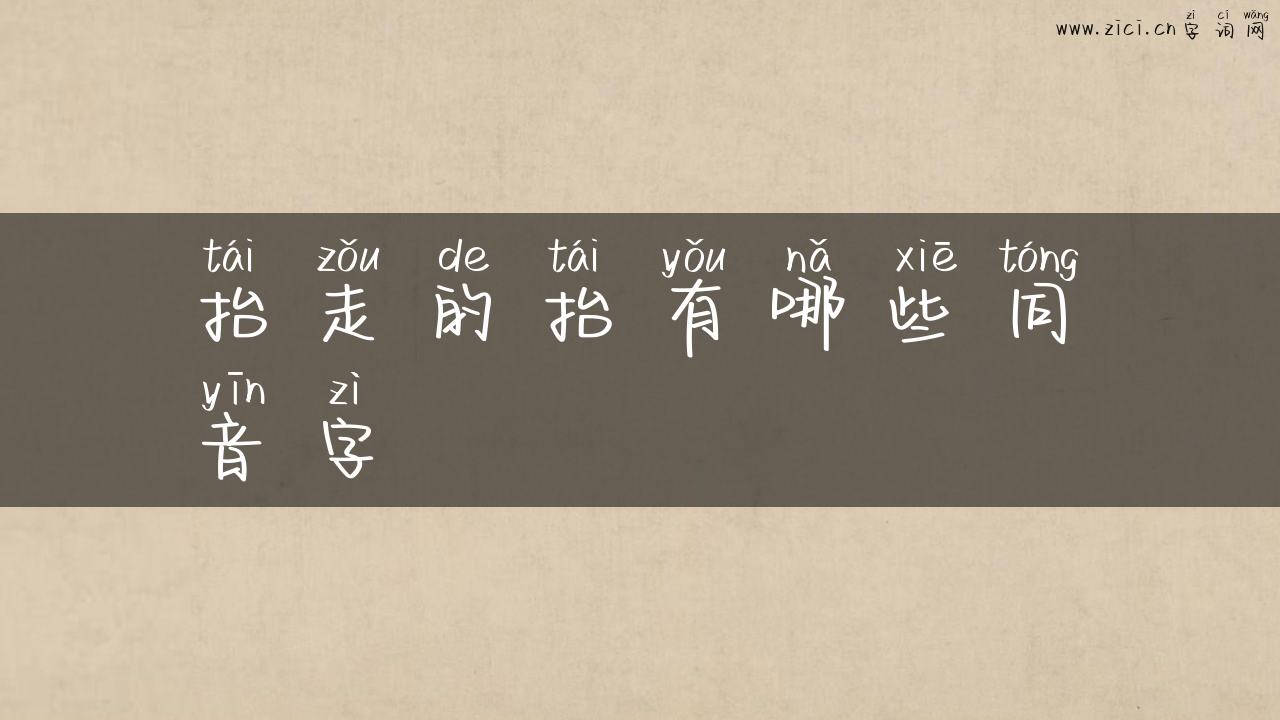 zì cí wǎng
www.zici.cn 字 词 网
tái zǒu de tái yǒu nǎ xiē tóng
抬 走 的 抬 有 哪 些 同
yīn zì
音 字